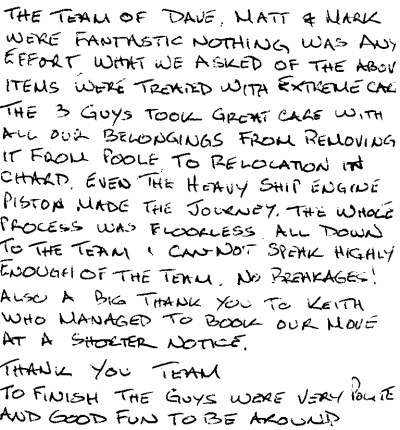 THE TEAM OF DAVE, MATT & MARK
WERE FANTASTIC NOTHING WAS ANY
EFFORT WHAT WE ASKED OF THE ABOV
ITEMS WERE TREATED WITH EXTREME CAR
THE 3 GUYS TOOK GREAT CARE WITH
ALL OUR BELONGINGS FROM REMOVING
IT FROM POOLE TO RELOCATION IN
CHARD. EVEN THE HEAVY SHIP ENGINE
PISTON MADE THE JOURNEY. THE WHOLE
PROCESS WAS FLOORLESS ALL DOWN
TO THE TEAM I CANNOT SPEAK HIGHLY
ENOUGH OF THE TEAM. NO BREAKAGES!
ALSO A BIG THANK YOU TO KEITH
WHO MANAGED TO BOOK OUR MOVE
AT A SHORTER NOTICE.
THANK YOU TEAM
TO FINISH THE GUYS WERE VERY POLITE
AND GOOD FUN TO BE AROUND